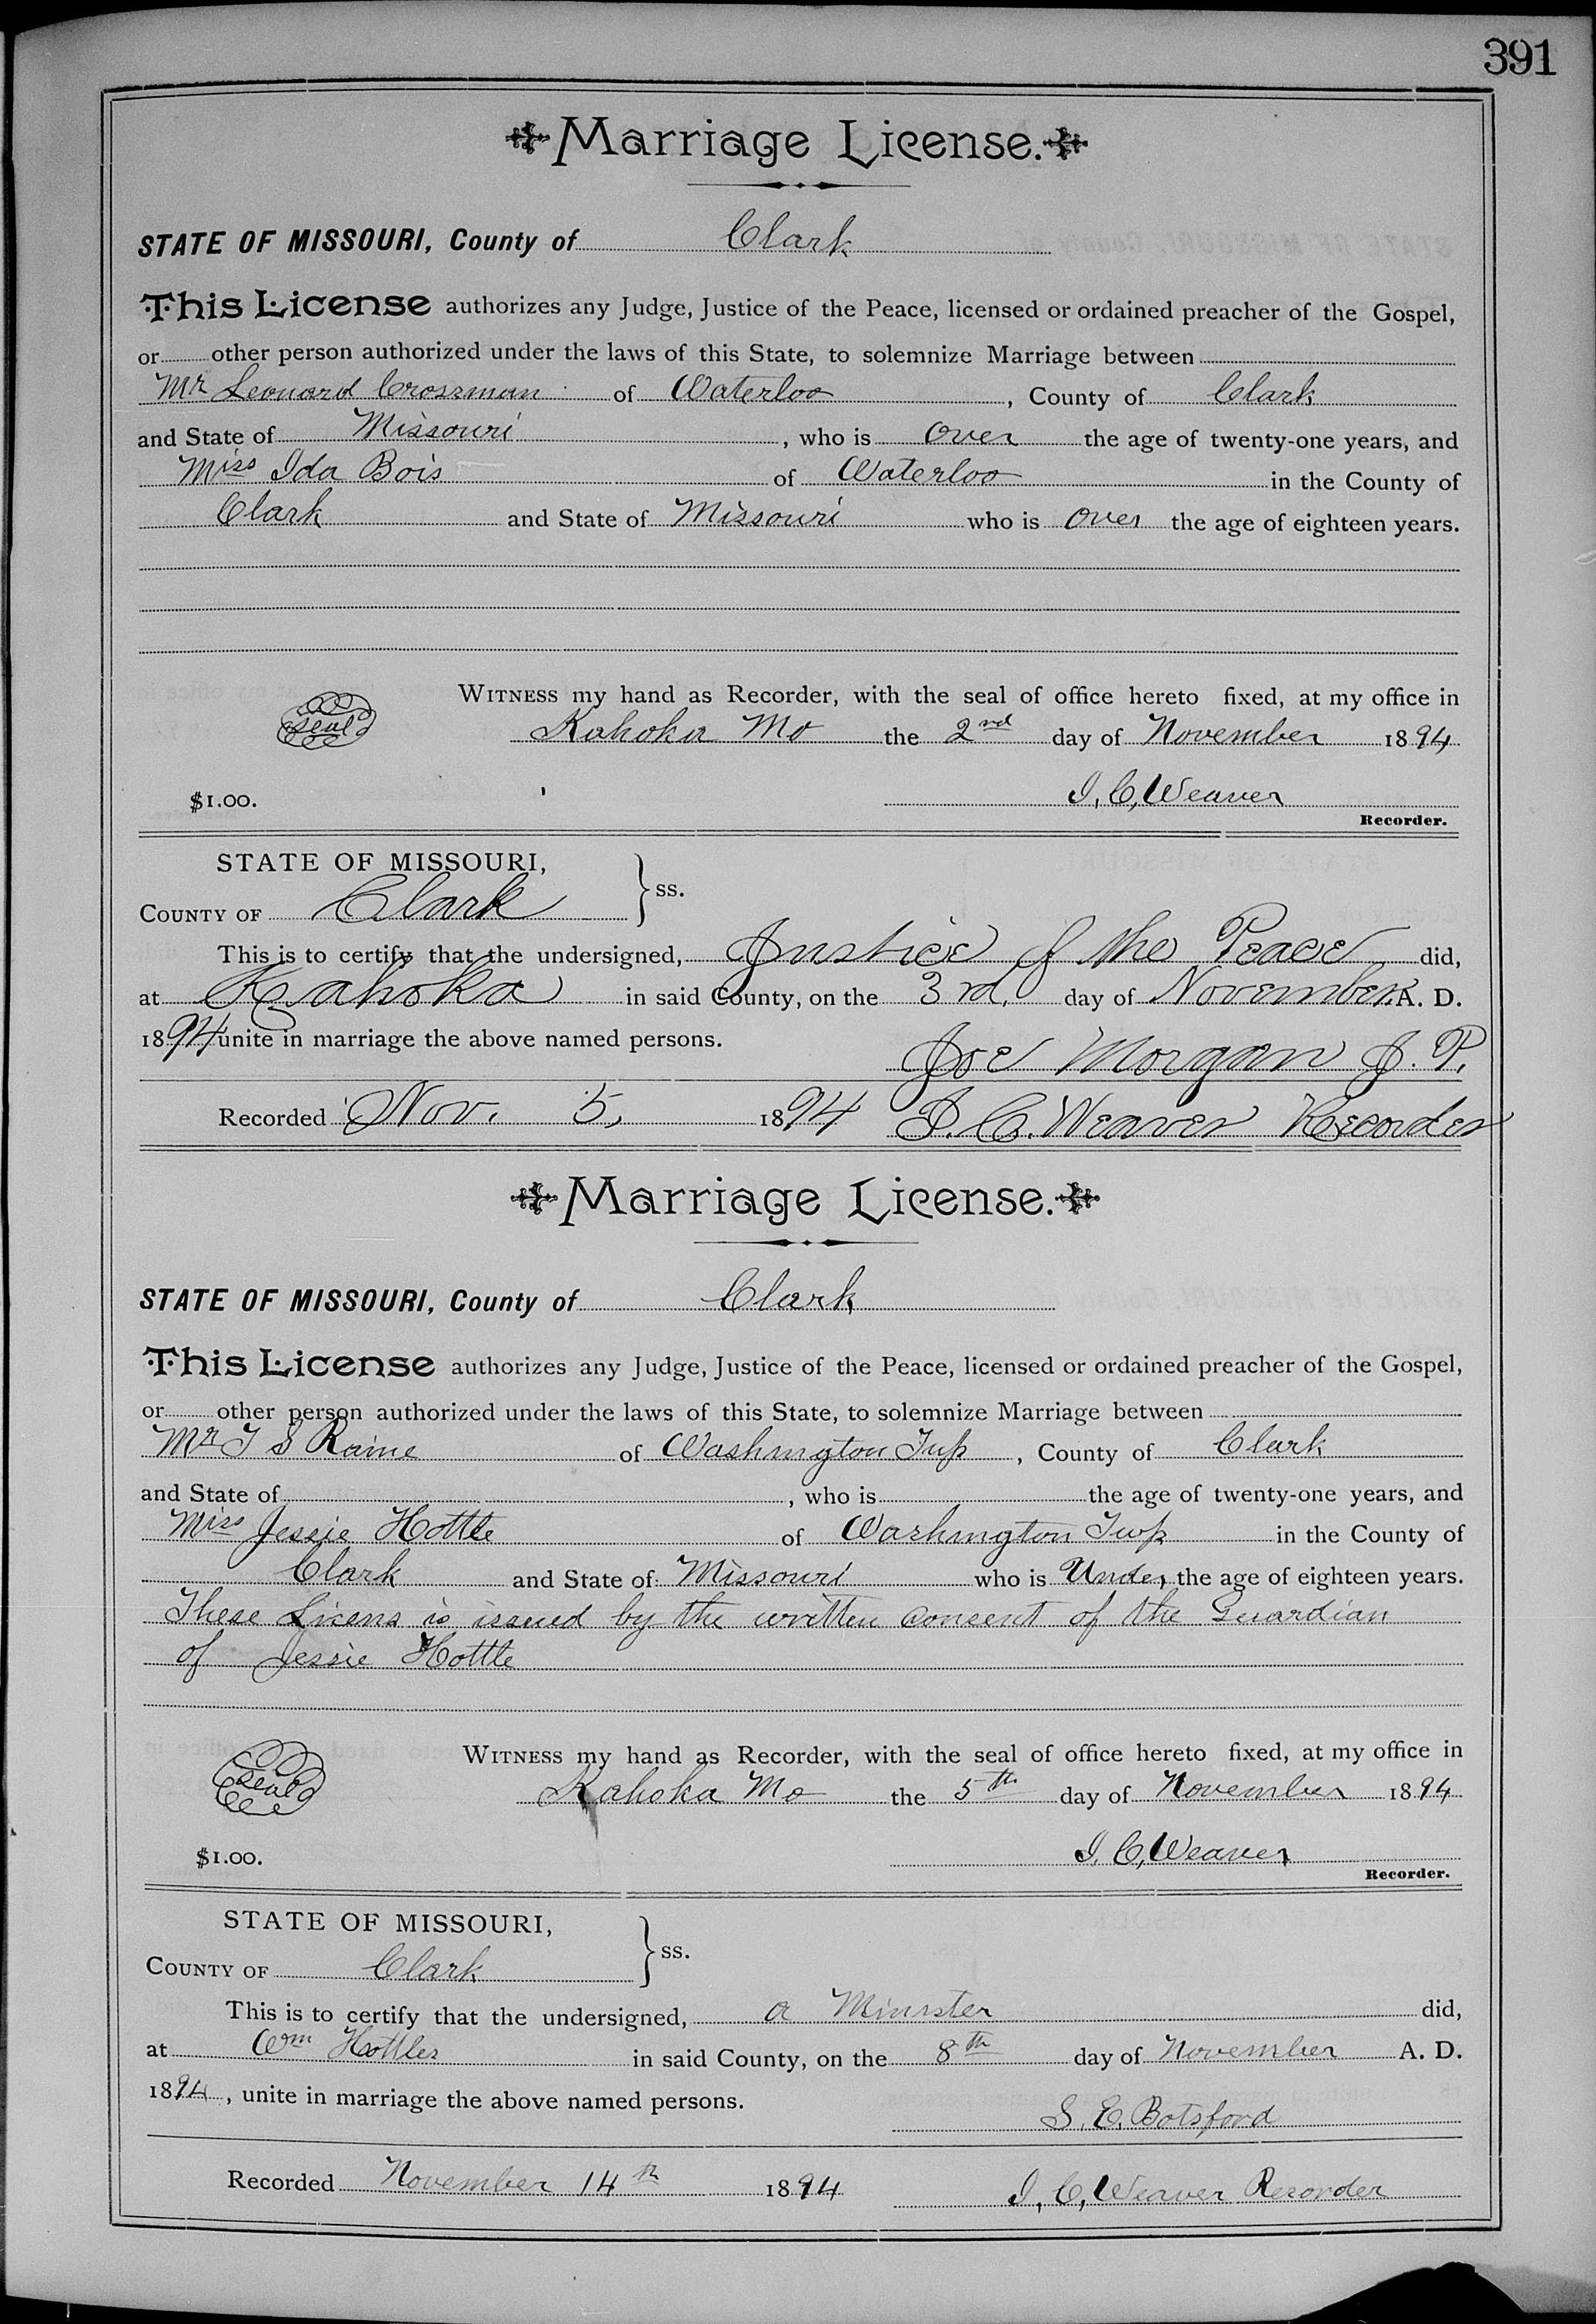 391
Marriage License.
STATE OF MISSOURI, County of Clark
This License authorizes any Judge, Justice of the Peace, licensed or ordained preacher of the Gospel,
or other person authorized under the laws of this State, to solemnize Marriage between
Mr Leonard Crossman of Waterloo, County of Clark
and State of Missouri, who is over the age of twenty-one years, and
Miss Ida Bois of Waterloo in the County of
Clark and State of Missouri who is over the age of eighteen years.
WITNESS my hand as Recorder, with the seal of office hereto fixed, at my office in
Seal Kahoka Mo the 2nd day of November 1894
$1.00. I. C, Weaver
Recorder.
STATE OF MISSOURI,
COUNTY OF Clark } ss.
This is to certify that the undersigned, Justice of the Peace did,
at Kahoka in said County, on the 3rd. day of November A. D.
1894 unite in marriage the above named persons.
Joe Morgan J. P.
Recorded Nov. 5, 1894 I. C. Weaver Recorder
Marriage License.
STATE OF MISSOURI, County of Clark
This License authorizes any Judge, Justice of the Peace, licensed or ordained preacher of the Gospel,
or other person authorized under the laws of this State, to solemnize Marriage between
Mr T S Raine of Washington Twp, County of Clark
and State of , who is the age of twenty-one years, and
Miss Jessie Hottle of Washington Twp in the County of
Clark and State of Missouri who is Under the age of eighteen years.
These Licens is issued by the written consent of the Guardian
of Jessie Hottle
WITNESS my hand as Recorder, with the seal of office hereto fixed, at my office in
Seal Kahoka Mo the 5th day of November 1894
$1.00. I. C, Weaver
Recorder.
STATE OF MISSOURI,
COUNTY OF Clark } ss.
This is to certify that the undersigned, a Minister did,
at Wm Hottles in said County, on the 8th day of November A. D.
1894, unite in marriage the above named persons.
S. E. Botsford
Recorded November 14th 1894 I, C, Weaver Recorder